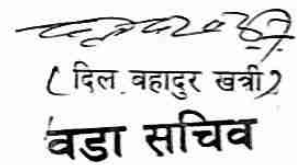 (दिल बहादुर खत्री)
वडा सचिव